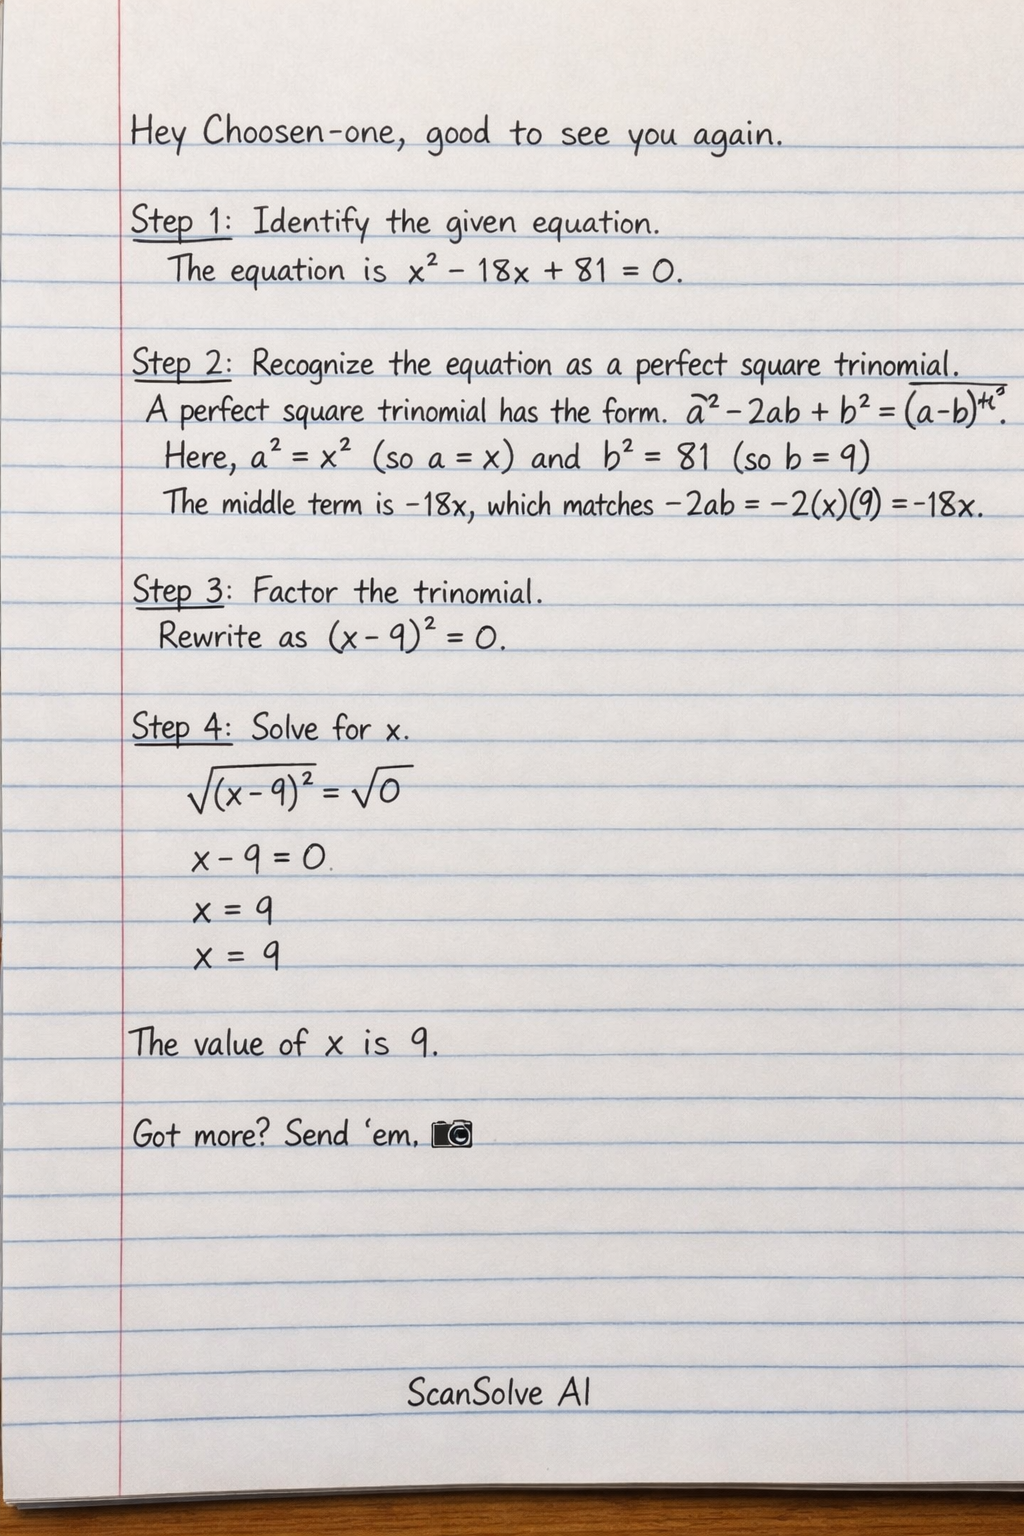 Hey Choosen-one, good to see you again.
Step 1: Identify the given equation.
The equation is x² - 18x + 81 = 0.
Step 2: Recognize the equation as a perfect square trinomial.
A perfect square trinomial has the form. a² - 2ab + b² = (a-b)
Here, a² = x² (so a = x) and b² = 81 (so b = 9)
The middle term is -18x, which matches -2ab = -2(x)(9) = -18x.
Step 3: Factor the trinomial.
Rewrite as (x - 9)² = 0.
Step 4: Solve for x.
√(x - 9)² = √0
x - 9 = 0.
x = 9
x = 9
The value of x is 9.
Got more? Send 'em, 📷
ScanSolve AI